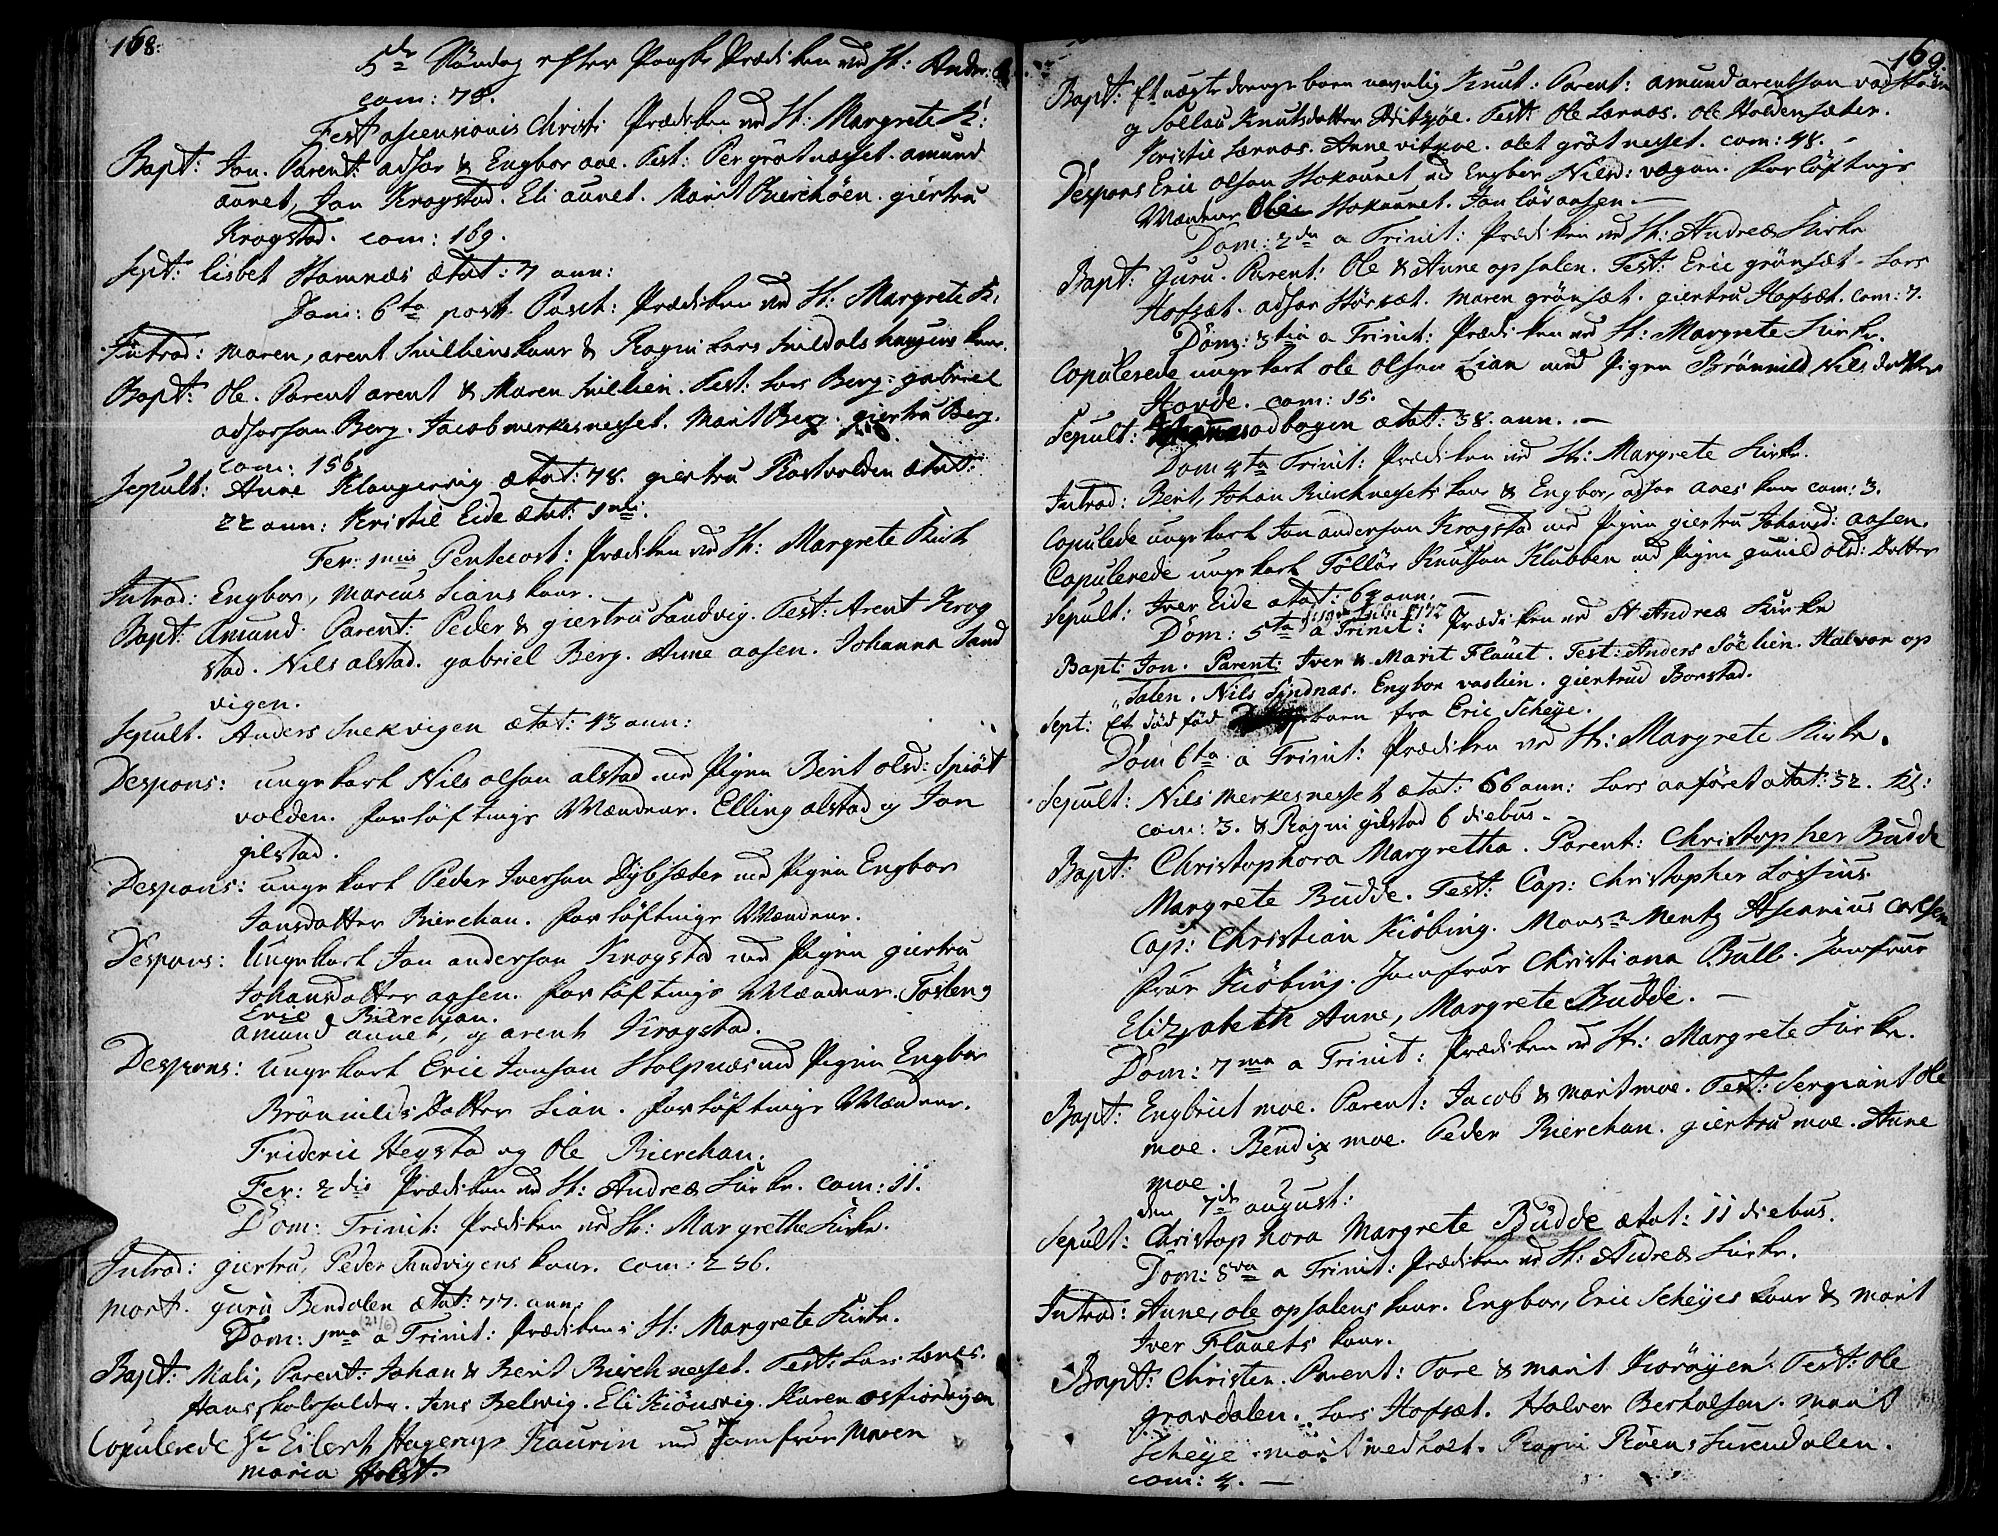 168.
5te Söndag efter Paaske Prædiken ved St: Andreæ
com: 78.
Fest ascensionis Christi Prædiken ved St: Margrete K:
Bapt: Jon. Parent: adsor & Engbor aae. Test: Per grötnesset. amund
aunet, Jon Krogstad. Eli aunet. Marit Bierchöen. giertru
Krogstad. com: 169.
Sept: lisbet Hamnæs ætat: 7 ann:
Dom: 6ta post Pasch: Prædiken ved St: Margrete K.
Introd: maren, arent Snilliens kone & Ragni Lars Snildals haugens kone.
Bapt: Ole. Parent arent & Maren Snillien. Test: Lars Berg. gabriel
adsorsøn Berg. Jacob merkesnesset. Marit Berg. giertru Berg.
com: 156.
Sepult: Anne Klungervig ætat: 78. giertru Rostvolden ætat:
22 ann: Kristie Eide ætat: 1 mens.
Fer: 1mæ Pentecost: Prædiken ved St: Margrete Kirk
Introd: Engbor, marcus Lians kone.
Bapt: Amund. Parent: Peder & giertru Sandvig. Test: Arent Krog
stad. Nils alstad. gabriel Berg. Anne aasen. Johanna Sand
vigen.
Sepult. Anders Snekvigen ætat: 43 ann:
Despons: ungekarl Nils olson alstad med Pigen Berit olsd: Spiöt
volden. forlöftnings Mændene. Elling alstad og Jon
gilstad.
Despons: ungekarl Peder Iverson Dybsæter med Pigen Engbor
Jonsdatter Bierchan. forlöftnings Mændene.
Despons: Ungekarl Jon anderson Krogstad med Pigen giertru
Johansdatter aasen. forlöftnings Mændene. Tosten og
Eric Bierchan.
amund aunet, og arent Krogstad.
Despons: Ungekarl Eric Jonson Holpnæs med Pigen Engbor
Brönnilds datter Lian. forlöftnings Mændene.
Frideric Hegstad og Ole Bierchan.
Fer: 2dæ Prædiken ved St: Andreæ Kirke. com: 11.
Dom: Trinit: Prædiken ved St: Margrethe Kirke.
Introd: giertru, Peder Sandvigens kone. com: 256.
mort. guru Bendalen ætat: 77. ann:
Dom: 1ma (21/6) a Trinit: Prædiken i St: Margrete Kirke.
Bapt: Mali, Parent: Johan & Berit Bierchnesset. Test: Lars Lernes.
Hans skoleholder. Jens Belsvig. Eli Kiönsvig. Karen osfiordvigen
Copulerede Hr Eilert Hagerup Kaurin med Jomfrue Maren
maria Holst.
169.
Bapt: Et uægte drenge barn navnlig Knut: Parent: amund arentson
og Sollau Knutsdatter Hitsjöe. Test: Ole Lernæs. Ole Holdensæter.
Kristie Lærnæs. Anne vitmoe. olet grötnesset. com: 48.
Despons Eric olson Stokaunet med Engbor Nilsd: vagan. forlöftnings
Mændene Stokaunet. Jon Löraasen.
Dom: 2da a Trinit: Prædiken ved St: Andreæ Kirke
Bapt: Guru. Parent: Ole & Anne opsalen. Test: Eric grönsæt. Lars
Hofsæt. adsor Störsæt. maren grönsæt. giertru Hofsæt. com: 7.
Dom: 3tia a Trinit: Prædiken ved St: Margrete Kirke.
Copulerede ungekarl ole olson Lian med Pigen Brönnild Nils datter
Hovde. com: 15.
Sepult: odbogen ætat: 38. ann.
Dom 4ta Trinit: Prædiken ved St: Margrete Kirke.
Introd: Berit, Johan Bierchnessets kone & Engbor, adsor aaes kone com: 3.
Copulerede ungekarl Jon anderson Krogstad med Pigen giertru Johansd: aasen.
Copulerede ungekarl Follor Knutson Klubben med Pigen gunild olsd: Dotter
Sepult: Iver Eide ætat: 67 ann.
Dom: 5ta a Trinit: Prædiken ved St Andreæ Kirke
Bapt: Jon. Parent: Iver & Marit Flauet. Test: Anders Söelien. Halvor op
salen. Nils Syndnæs. Engbor vaslien. giertrud Borstad.
Sept: Et död föd barn fra Eric Scheye.
Dom 6ta a Trinit: Prædiken ved St: Margrete Kirke.
Sepult: Nils merkesnesset ætat: 66 ann: Lars aaforet ætat: 32.
com: 3. & Ragni gilstad 6 diebus.
Bapt: Christophora Margretha. Parent: Christopher Budde
Margrete Budde. Test: Cap: Christopher Lossius
Cap: Christian Kiöbing. Monsr Mentz Ascanius Carlsen
Frue Kiöbing. Jomfrue Christiana Bull. Jomfrue
Elizabeth Anne, Margrete Budde.
Dom: 7ma a Trinit: Prædiken ved St: Margrete Kirke.
Bapt: Engbrict moe. Parent: Jacob & marit moe. Test: Sergiant Ole
moe. Bendix moe. Peder Bierchan. giertru moe. Anne
moe.
den 7de august:
Sepult: Christophora Margrete Budde ætat: 11 diebus.
Dom: 8va a Trinit: Prædiken ved St: Andreæ Kirke.
Introd: Anne, ole opsalens kone. Engbor, Eric Scheyes kone & marit
Iver Flauets kone.
Bapt: Christen. Parent: Tore & marit Kioröyen. Test: Ole
gravdalen. Lars Hofsæt. Halvor Bertholsen. marit
Scheye. marit vedholt. Ragni Röen: Surendalen.
com: 4.